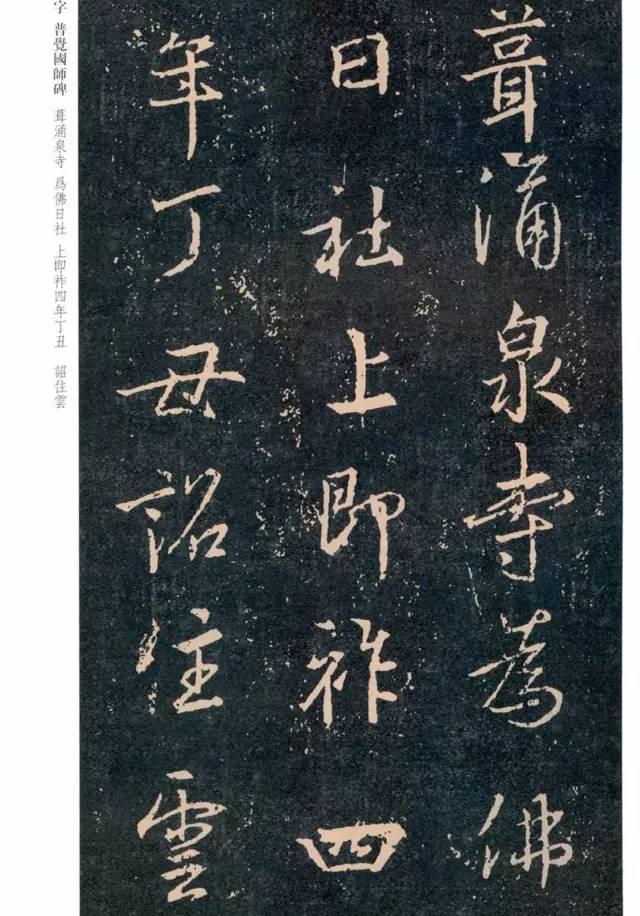 葺涌泉寺爲佛
日社上即祚四
年丁丑詔住雲
字 普覺國師碑 葺涌泉寺 爲佛日社 上即祚四年丁丑 詔住雲